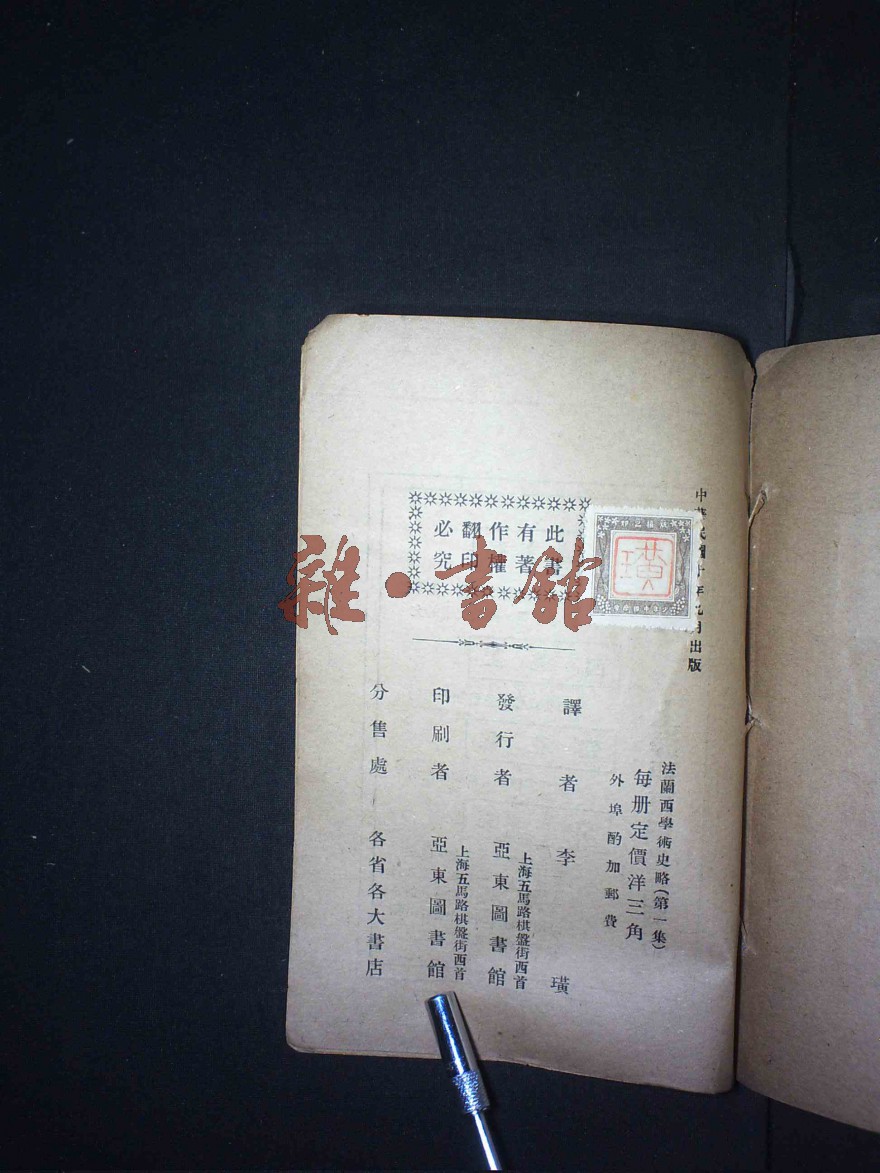 中華民國十年九月出版
法蘭西學術史略(第一集)
每册定價洋三角
外埠酌加郵費
譯者 李璜
上海五馬路棋盤街西首
發行者 亞東圖書館
上海五馬路棋盤街西首
印刷者 亞東圖書館
分售處 各省各大書店
此書
有著
作權
翻印
必究
璜
雜·書館